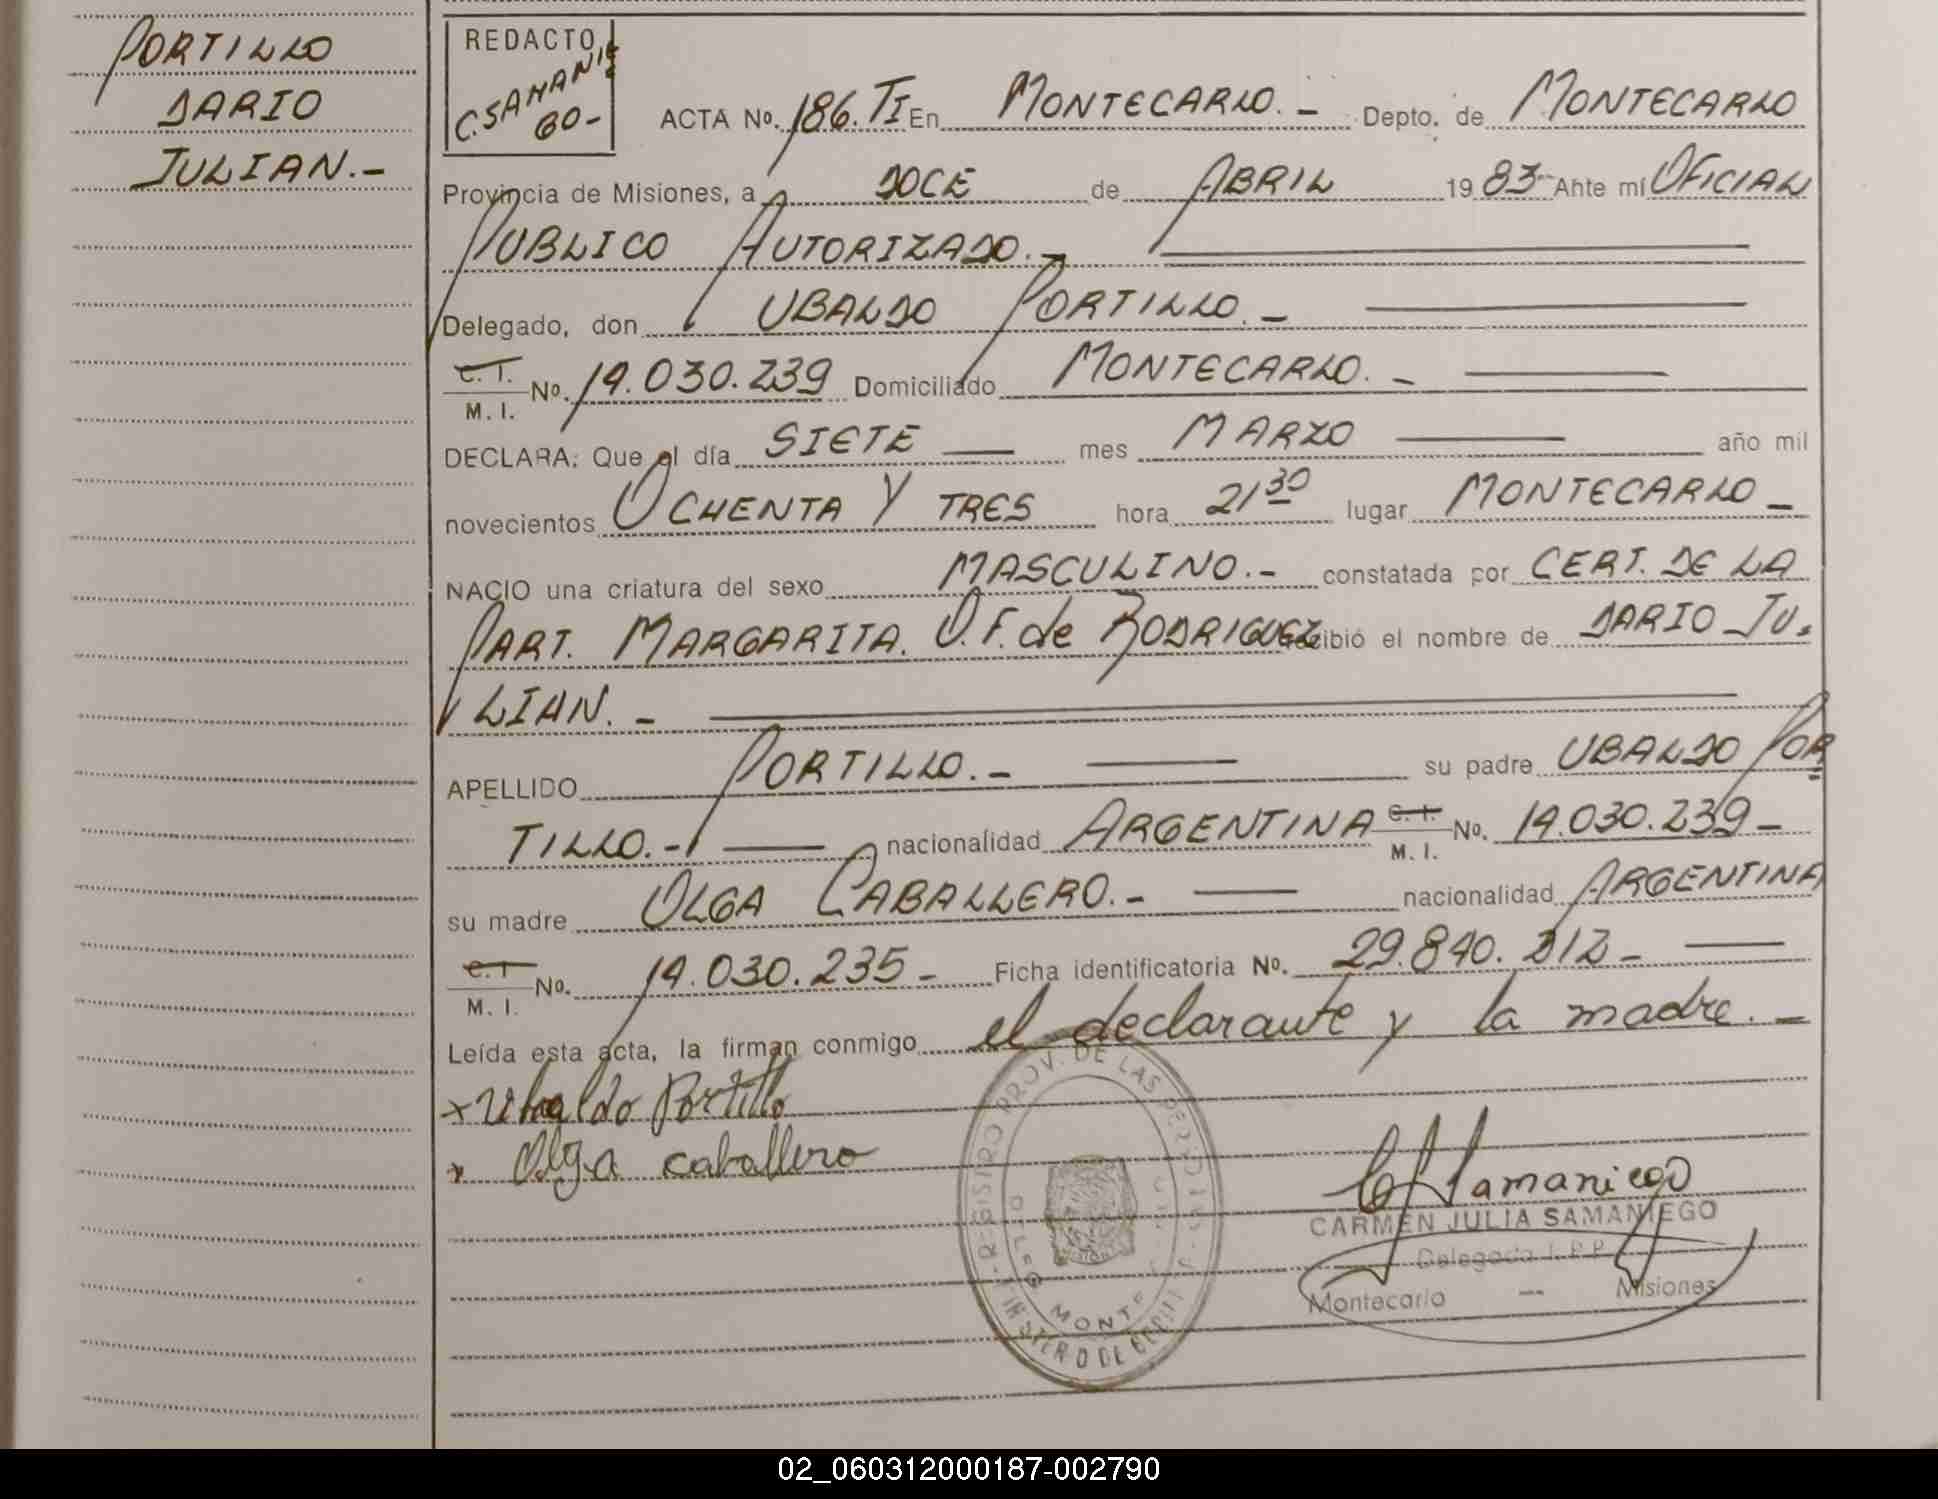 PORTILLO
DARIO
JULIAN.-
REDACTO
C. SAMANIE
GO-
ACTA Nº. 186. TI En MONTECARLO.- Depto. de MONTECARLO
Provincia de Misiones, a DOCE de ABRIL 19 83 Ante mí OFICIAL
PUBLICO AUTORIZADO.-
Delegado, don UBALDO PORTILLO.-
C. I.
M. I. Nº. 14.030.239 Domiciliado MONTECARLO.-
DECLARA: Que el día SIETE mes MARZO año mil
novecientos OCHENTA Y TRES hora 21 30 lugar MONTECARLO -
NACIO una criatura del sexo MASCULINO.- constatada por CERT. DE LA
PART. MARGARITA. O. F. de RODRIGUEZ recibió el nombre de DARIO JU-
LIAN.-
APELLIDO PORTILLO.- su padre UBALDO POR
TILLO.- nacionalidad ARGENTINA C. I.
M. I. Nº. 14.030.239-
su madre OLGA CABALLERO.- nacionalidad ARGENTINA
C. I
M. I. Nº. 14.030.235- Ficha identificatoria Nº. 29.840.212-
Leída esta acta, la firman conmigo el declarante y la madre.-
x Ubaldo Portillo
x Olga caballero
REGISTRO PROV. DE LAS PERSONAS
MINISTERIO DE
DELEG MONTE
Samaniego
CARMEN JULIA SAMANIEGO
Delegada
Montecarlo - Misiones
02_060312000187-002790